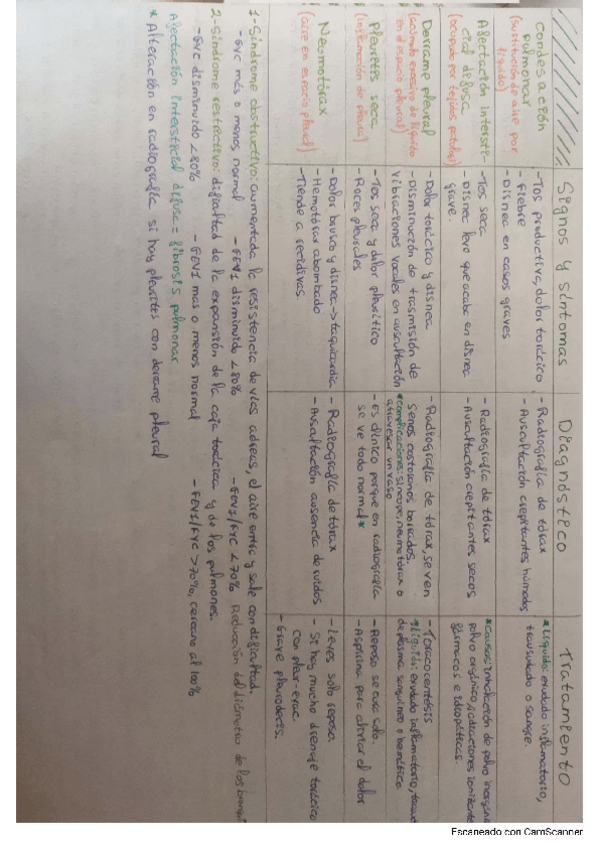 Signos y síntomas
Diagnóstico
Tratamiento
Condensación
pulmonar
(sustitución de aire por
líquido)
- Tos productiva, dolor torácico
- Fiebre
- Disnea en casos graves
- Radiografía de tórax
- Auscultación crepitantes húmedos
*Líquido: exudado inflamatorio,
trasudado o sangre.
Afectación intersti-
cial difusa
(ocupado por tejidos patolog)
- Tos seca
- Disnea leve que acaba en disnea
grave.
- Radiografía de tórax
- Auscultación crepitantes secos
*Causas: inhalación de polvo inorgáni
polvo orgánico, radiaciones ionizante
fármacos e idiopáticas.
Derrame pleural
(acúmulo excesivo de líquido
en el espacio pleural)
- Dolor torácico y disnea
- Disminución de trasmisión de
vibraciones vocales en auscultación
- Radiografía de tórax, se ven
senos costofrénicos borrados.
*Complicaciones: síncope, neumotórax o
atravesar un vaso
- Toracocentésis
*Líquido: exudado inflamatorio, trasud
de plasma sanguíneo o hemático.
Pleuritis seca
(inflamación de pleura)
- Tos seca y dolor pleurítico
- Roces pleurales
- Es clínico porque en radiografía
se ve todo normal*
- Reposo se cura solo.
- Aspirina para aliviar el dolor
Neumotórax
(aire en espacio pleural)
- Dolor brusco y disnea -> taquicardia
- Hemotórax abombado
- Tiende a recidivas.
- Radiografía de tórax
- Auscultación ausencia de ruidos
- Leves solo reposo.
- Si hay mucho drenaje torácico
con pleur-evac.
- Grave pleurodesis.
1-Síndrome obstructivo: aumentada la resistencia de vías aéreas, el aire entra y sale con dificultad.
- FVC más o menos normal - FEV1 disminuido <80% - FEV1/FVC <70% Reducción del diámetro de los bronqui
2-Síndrome restrictivo: dificultad de la expansión de la caja torácica y de los pulmones.
- FVC disminuido <80% - FEV1 más o menos normal - FEV1/FVC >70%, cercano al 100%
Afectación intersticial difusa = fibrosis pulmonar
* Alteración en radiografía si hay pleuritis con derrame pleural
Escaneado con CamScanner